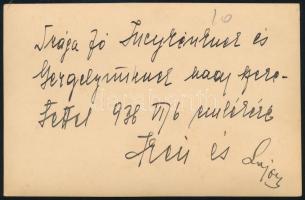 10
Drága jó Lucykánknak és
Gergelyünknek nagy szere-
tettel 938 VI/6 emlékére
Irén és Lajos